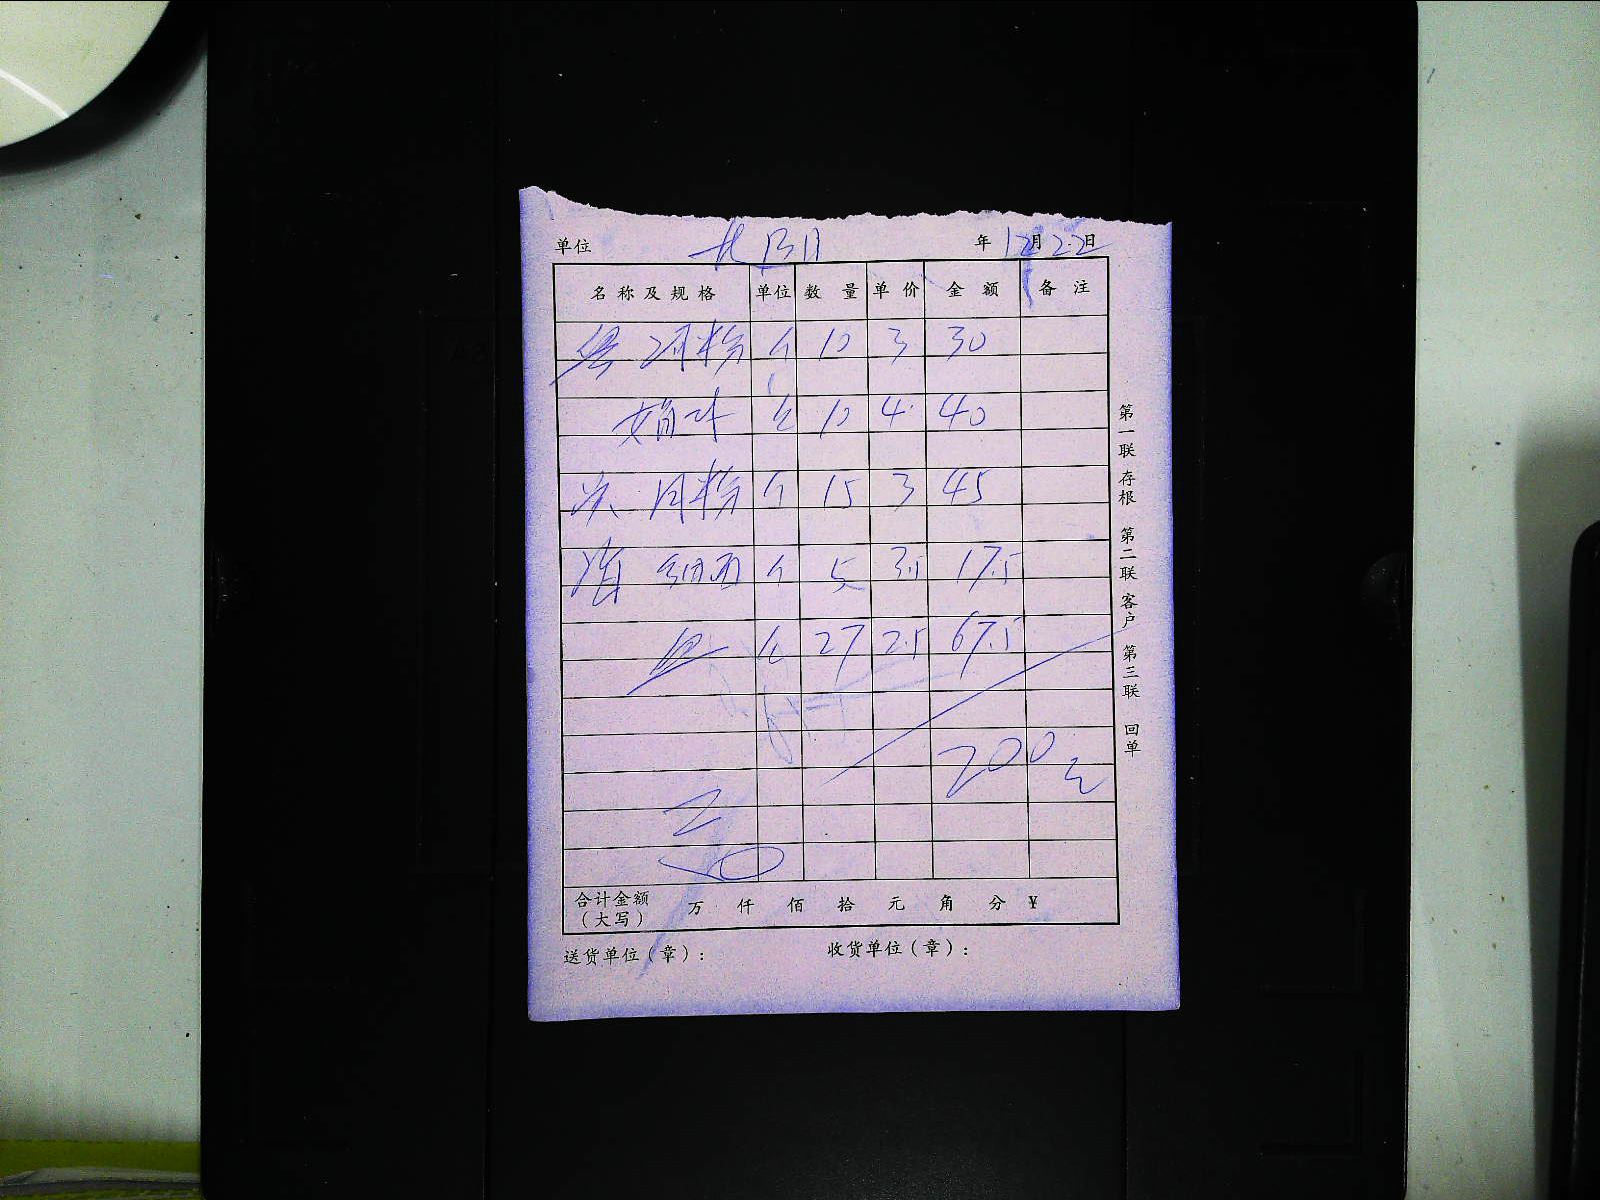 单位 北 年12月22日
名称及规格 单位 数量 单价 金额 备注
河粉 个 10 3 30
个 10 4 40
月粉 个 15 3 45
细面 个 5 3.5 17.5
个 27 2.5 67.5
200元
合计金额（大写） 万 仟 佰 拾 元 角 分 ¥
送货单位（章）： 收货单位（章）：
第一联 存根 第二联 客户 第三联 回单